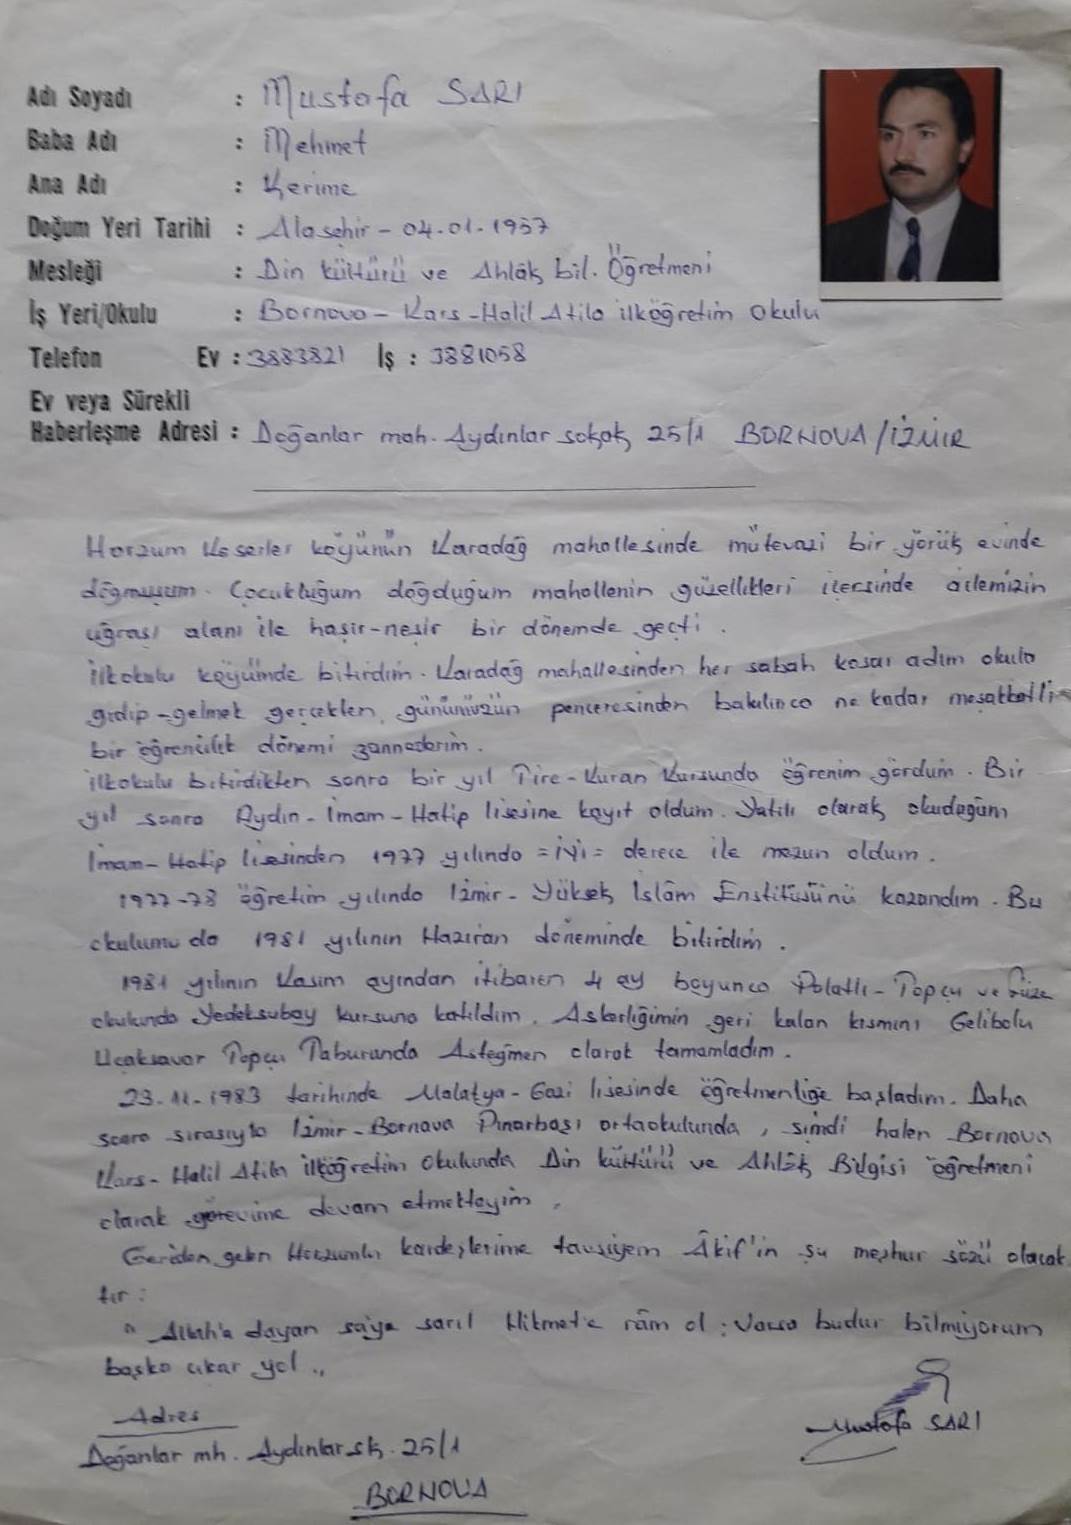 Adı Soyadı : Mustafa SARI
Baba Adı : Mehmet
Ana Adı : Kerime
Doğum Yeri Tarihi : Alaşehir - 04.01.1957
Mesleği : Din kültürü ve Ahlâk bil. Öğretmeni
İş Yeri/Okulu : Bornova - Kars - Halil Atila ilköğretim Okulu
Telefon Ev : 3883821 İş : 3881058
Ev veya Sürekli
Haberleşme Adresi : Doğanlar mah. Aydınlar sokak 25/1 BORNOVA/İZMİR
Horzum Keserler köyünün Karadağ mahallesinde mütevazi bir yörük evinde
doğmuşum. Çocukluğum doğduğum mahallenin güzellikleri içersinde ailemizin
uğraşı alanı ile haşir-neşir bir dönemde geçti.
İlkokulu köyümde bitirdim. Karadağ mahallesinden her sabah koşar adım okula
gidip-gelmek gerçekten günümüzün penceresinden bakılınca ne kadar meşakkatli
bir öğrencilik dönemi zannederim.
ilkokulu bitirdikten sonra bir yıl Tire - Kuran Kursunda öğrenim gördüm. Bir
yıl sonra Aydın - İmam - Hatip lisesine kayıt oldum. Yatılı olarak okuduğum
İmam - Hatip lisesinden 1977 yılında =İyi= derece ile mezun oldum.
1977-78 öğretim yılında İzmir - Yüksek İslâm Enstitüsünü kazandım. Bu
okulumu da 1981 yılının Haziran döneminde bitirdim.
1981 yılının Kasım ayından itibaren 4 ay boyunca Polatlı - Topçu ve Füze
okulunda Yedeksubay kursuna katıldım. Askerliğimin geri kalan kısmını Gelibolu
Uçaksavar Topçu Taburunda Asteğmen olarak tamamladım.
23.11.1983 tarihinde Malatya - Gazi lisesinde öğretmenliğe başladım. Daha
sonra sırasıyla İzmir - Bornova Pınarbaşı ortaokulunda, şimdi halen Bornova
Kars - Halil Atila ilköğretim Okulunda Din kültürü ve Ahlâk Bilgisi öğretmeni
olarak görevime devam etmekteyim.
Geriden gelen Horzumlu kardeşlerime tavsiyem Âkif'in şu meşhur sözü olacak
tır:
" Allah'a dayan sa'ye sarıl Hikmet'e râm ol ; Varsa budur bilmiyorum
başka çıkar yol ..
Adres
Doğanlar mh. Aydınlar sk. 25/1
BORNOVA
Mustafa SARI